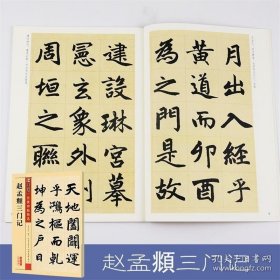 月出入經乎
黄道而卯酉
為之門是故
建設琳宫摹
憲玄象外
周垣之聯
天地闔闢運
乎鴻樞而乾
坤為之户日
赵孟頫三门记
赵孟頫三门记